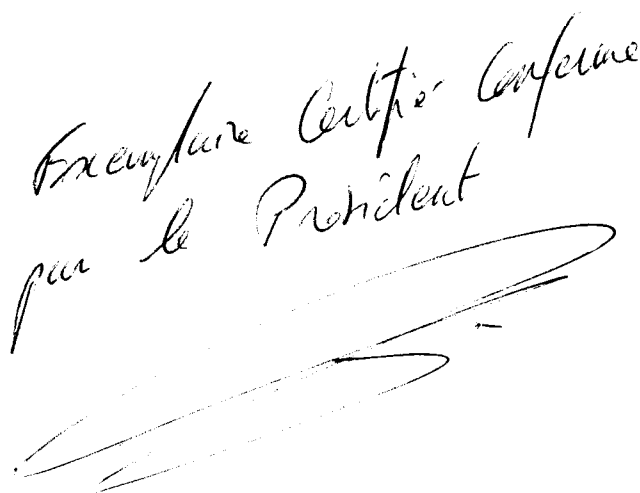 Exemplaire Certifié Conforme
par le Président